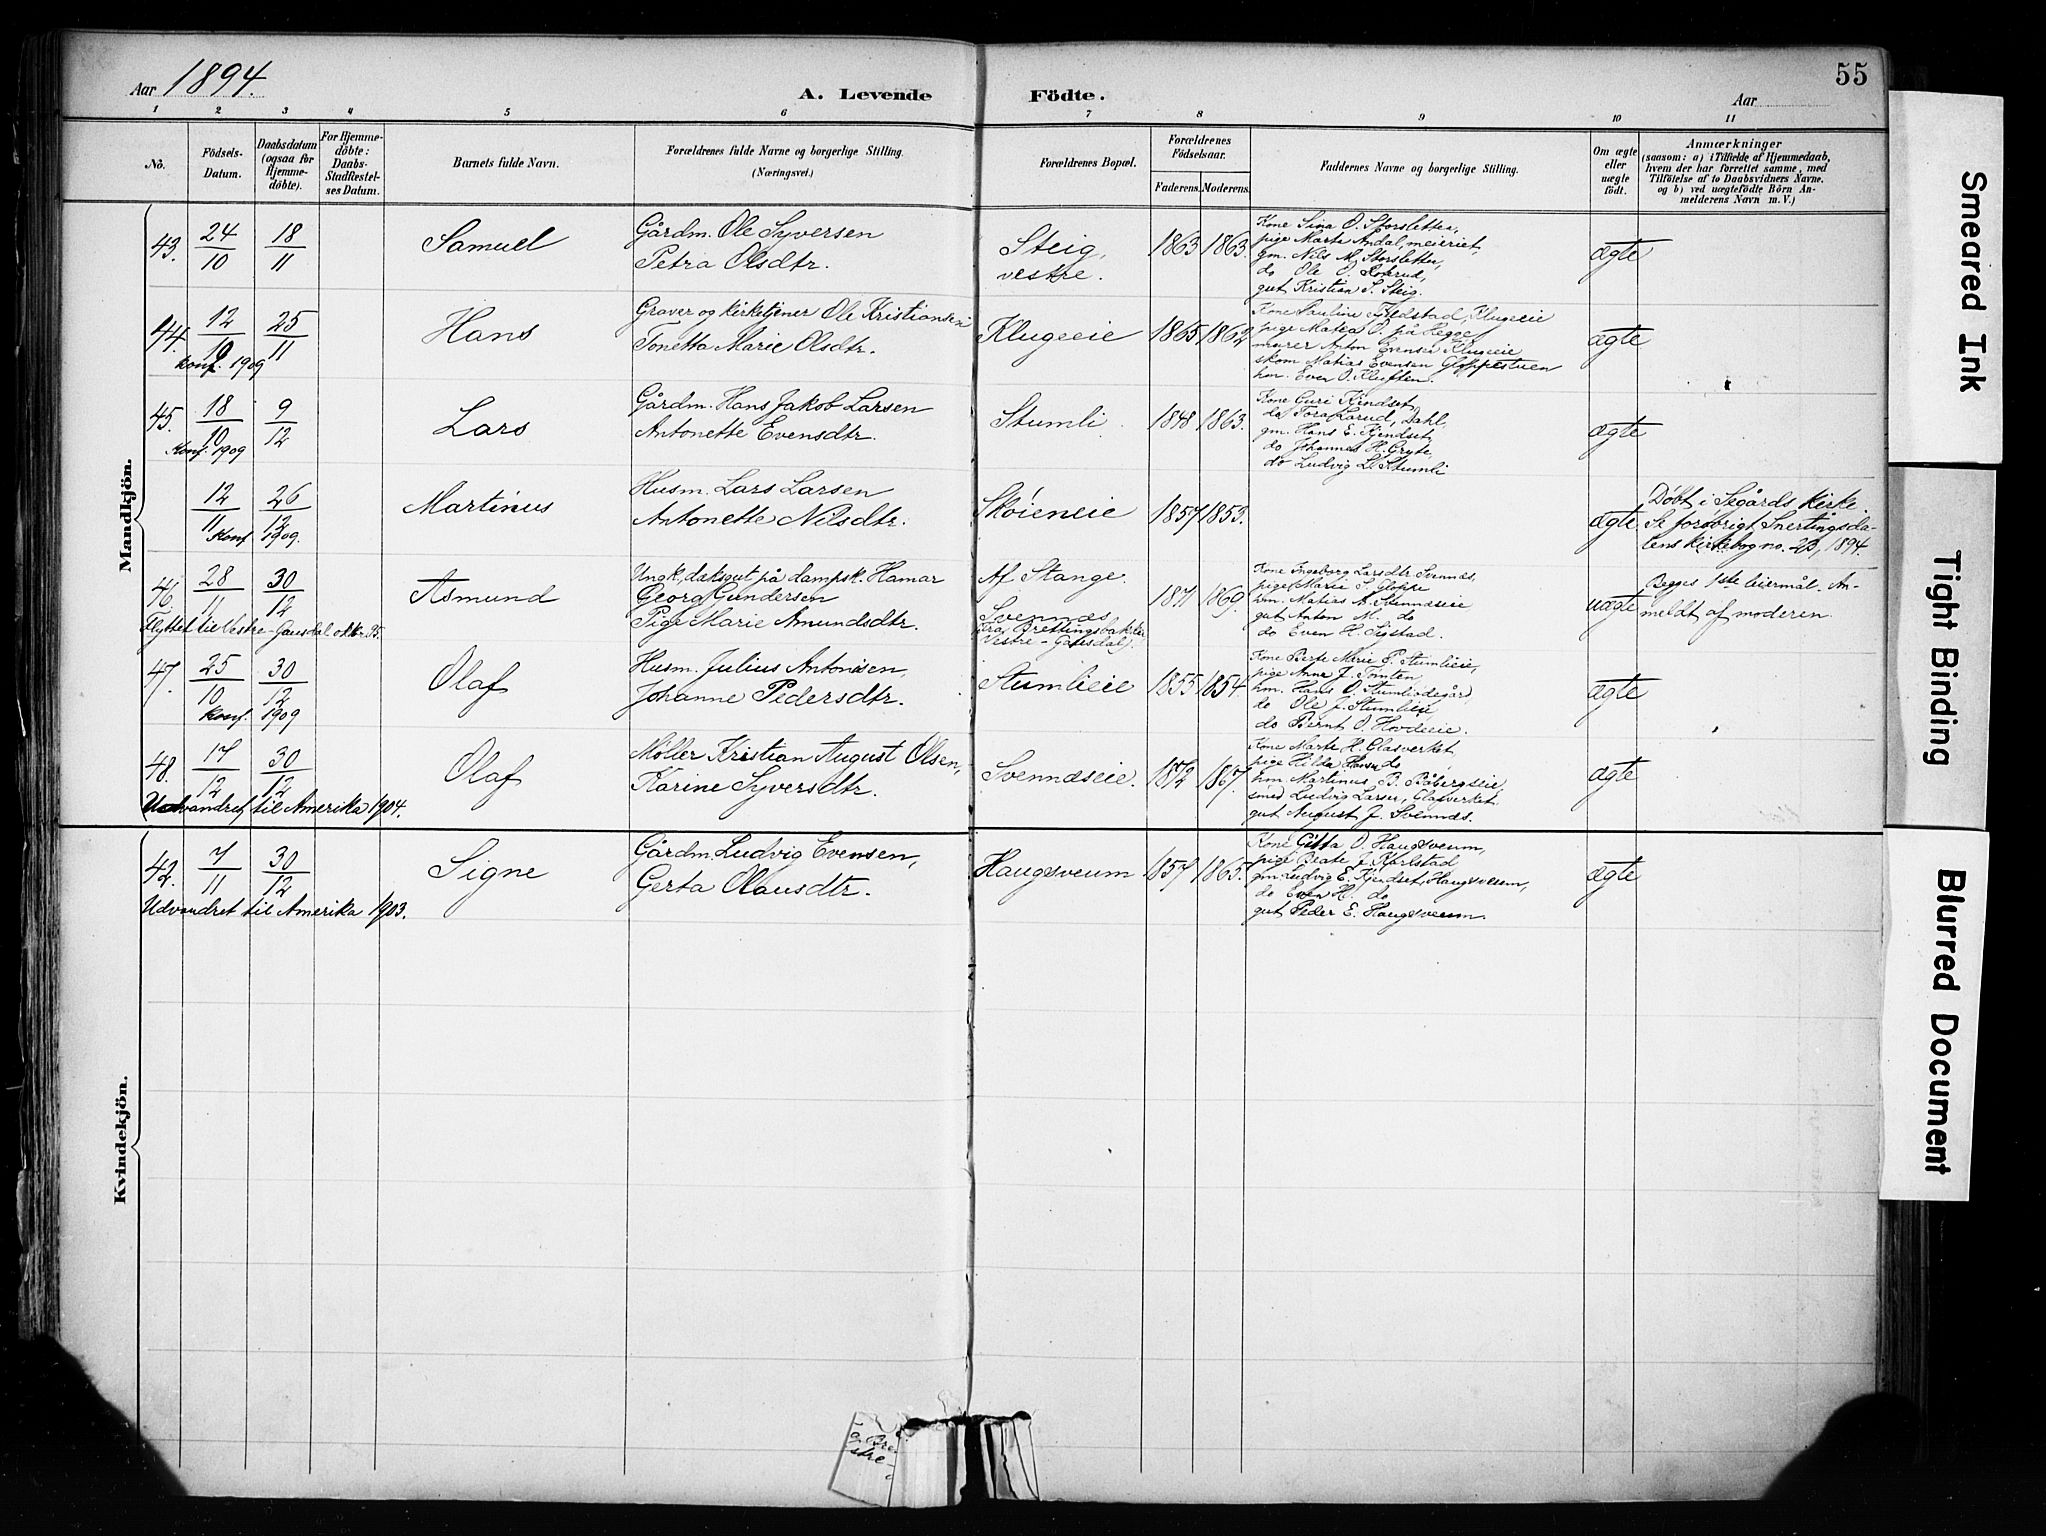 Aar 1894.
A. Levende Födte.
Aar
55
1 2 3 4 5 6 7 8 9 10 11
No.
Födsels-Datum.
Daabsdatum (ogsaa for Hjemme-döbte).
For Hjemme-döbte: Daabs-Stadfæstel-ses Datum.
Barnets fulde Navn.
Forældrenes fulde Navne og borgerlige Stilling. (Næringsvei.)
Forældrenes Bopæl.
Forældrenes Födselsaar.
Faderens. Moderens.
Faddernes Navne og borgerlige Stilling.
Om ægte eller uægte födt.
Anmærkninger
(saasom: a) i Tilfælde af Hjemmedaab,
hvem der har forrettet samme, med
Tilföielse af to Daabsvidners Navne.
og b) ved uægtefödte Börn An-
melderens Navn m. V.)
Mandkjön.
43. 24/10 18/11 Samuel
Gårdm. Ole Syversen
Petra Olsdtr.
Steig, vestre. 1863 1863.
Kone Sina O. Storsletten,
pige Marta Andal, meieriet,
gm. Nils M. Storsletten,
do Ole O.
gut Kristian S. Steig.
ægte
44. 12/10 25/11 Hans
konf. 1909
Graver og kirketjener Ole Kristiansen
Tonetta Marie Olsdtr.
Klugeeie 1865 1862
Kone Pauline Klugeeie
pige Matea O. på Hegge,
murer Anton Evensen Klugeeie
skom. Matias Evensen Gloppestuen
hm. Even O. Kluften.
ægte
45. 18/10 9/12 Lars
Konf. 1909
Gårdm. Hans Jakob Larsen
Antonette Evensdtr.
Stumli 1848 1863.
Kone Guri Kindset,
do Tora Larud, Dahl,
gm. Hans E. Kjendset,
do Johannes H. Gryte,
do Ludvig L. Stumli
ægte
12/11 26/12 Martinus
Konf. 1909.
Husm. Lars Larsen
Antonette Nilsdtr.
Skøieneie 1857 1853.
ægte
Døbt i Segårds kirke.
Se forøvrigt Snertingsda-
lens kirkebog no. 23, 1894.
46. 28/11 30/12 Asmund
Flyttet til Vestre-Gausdal oktbr. 95.
Ungk., dæksgut på dampsk. Hamar
Georg Gundersen
Pige Marie Amundsdtr.
Af Stange.
Svennæs
(fra Brettingsbakken
Vestre-Gausdal).
1871 1869.
Kone Ingeborg Larsdtr Svennæs,
pige Marie S. Gloppe
hm. Matias A. Svennæseie
gut Anton M. do
do Even H. Sigstad.
uægte
Begges 1ste leiermål. An-
meldt af moderen.
47. 25/10 30/12 Olaf
konf. 1909
Husm. Julius Antonisen,
Johanne Pedersdtr.
Stumlieie 1855 1854
Kone Berte Marie P. Stumlieie,
pige Anne J. Tomten,
hm. Hans O. Stumliødegård,
do Ole J. Stumlieie
do Bernt O. Hovdeeie.
ægte
48. 17/12 30/12 Olaf
Udvandret til Amerika 1904.
Møller Kristian August Olsen,
Karine Syversdtr.
Svennæseie. 1872 1867.
Kone Marte H. Glasverket
pige Hilda Hansen do
hm. Martinus B. Båbergseie,
smed Ludvig Larsen, Glasverket.
gut August J. Svennæs.
ægte
Kvindekjön.
42. 7/11 30/12 Signe
Udvandret til Amerika 1903.
Gårdm. Ludvig Evensen,
Gerta Olausdtr.
Haugsveum 1857 1865.
Kone Gitta O. Haugsveum,
pige Beate J. Karlstad
gm. Ludvig E. Kjendset, Haugsveum,
do Even H. do
gut Peder E. Haugsveum.
ægte
Smeared Ink
Tight Binding
Blurred Document